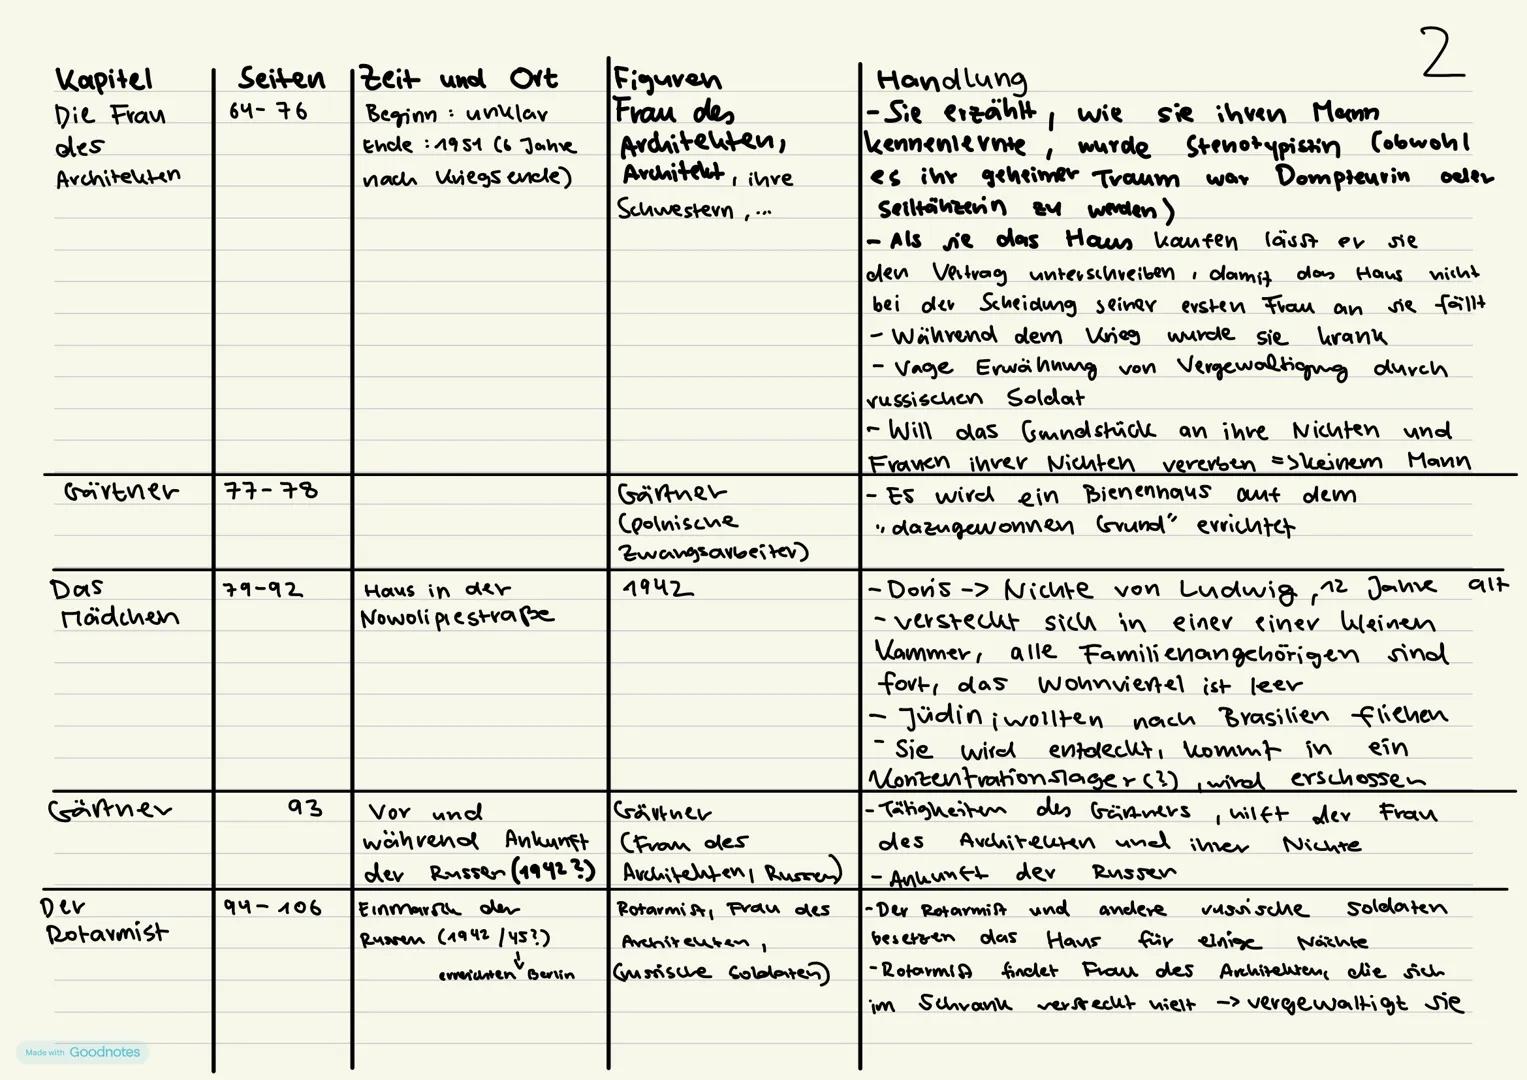 2
Kapitel Seiten Zeit und Ort Figuren Handlung
Die Frau
des
Architekten
64-76
Beginn : unklar
Ende : 1951 (6 Jahre
nach Kriegsende)
Frau des
Architekten,
Architekt, ihre
Schwestern, ...
- Sie erzählt, wie sie ihren Mann
kennenlernte, wurde Stenotypistin (obwohl
es ihr geheimer Traum war Dompteurin oder
Seiltänzerin zu werden)
- Als sie das Haus kaufen lässt er sie
den Vertrag unterschreiben, damit das Haus nicht
bei der Scheidung seiner ersten Frau an sie fällt
- Während dem Krieg wurde sie krank
- Vage Erwähnung von Vergewaltigung durch
russischen Soldat
- Will das Grundstück an ihre Nichten und
Frauen ihrer Nichten vererben => keinem Mann
Gärtner
77-78
Gärtner
(polnische
Zwangsarbeiter)
- Es wird ein Bienenhaus auf dem
"dazugewonnen Grund" errichtet
Das
Mädchen
79-92
Haus in der
Nowolipiestraße
1942
- Doris -> Nichte von Ludwig, 12 Jahre alt
- versteckt sich in einer einer kleinen
Kammer, alle Familienangehörigen sind
fort, das Wohnviertel ist leer
- Jüdin; wollten nach Brasilien fliehen
- Sie wird entdeckt, kommt in ein
Konzentrationslager (?), wird erschossen
Gärtner
93
Vor und
während Ankunft
der Russen (1942?)
Gärtner
(Frau des
Architekten, Russen)
- Tätigkeiten des Gärtners, hilft der Frau
des Architekten und ihrer Nichte
- Ankunft der Russen
Der
Rotarmist
94-106
Einmarsch der
Russen (1942/45?)
↓
erreichten Berlin
Rotarmist, Frau des
Architekten,
(russische Soldaten)
- Der Rotarmist und andere russische Soldaten
besetzen das Haus für einige Nächte
- Rotarmist findet Frau des Architekten, die sich
im Schrank versteckt hielt -> vergewaltigt sie
Made with Goodnotes